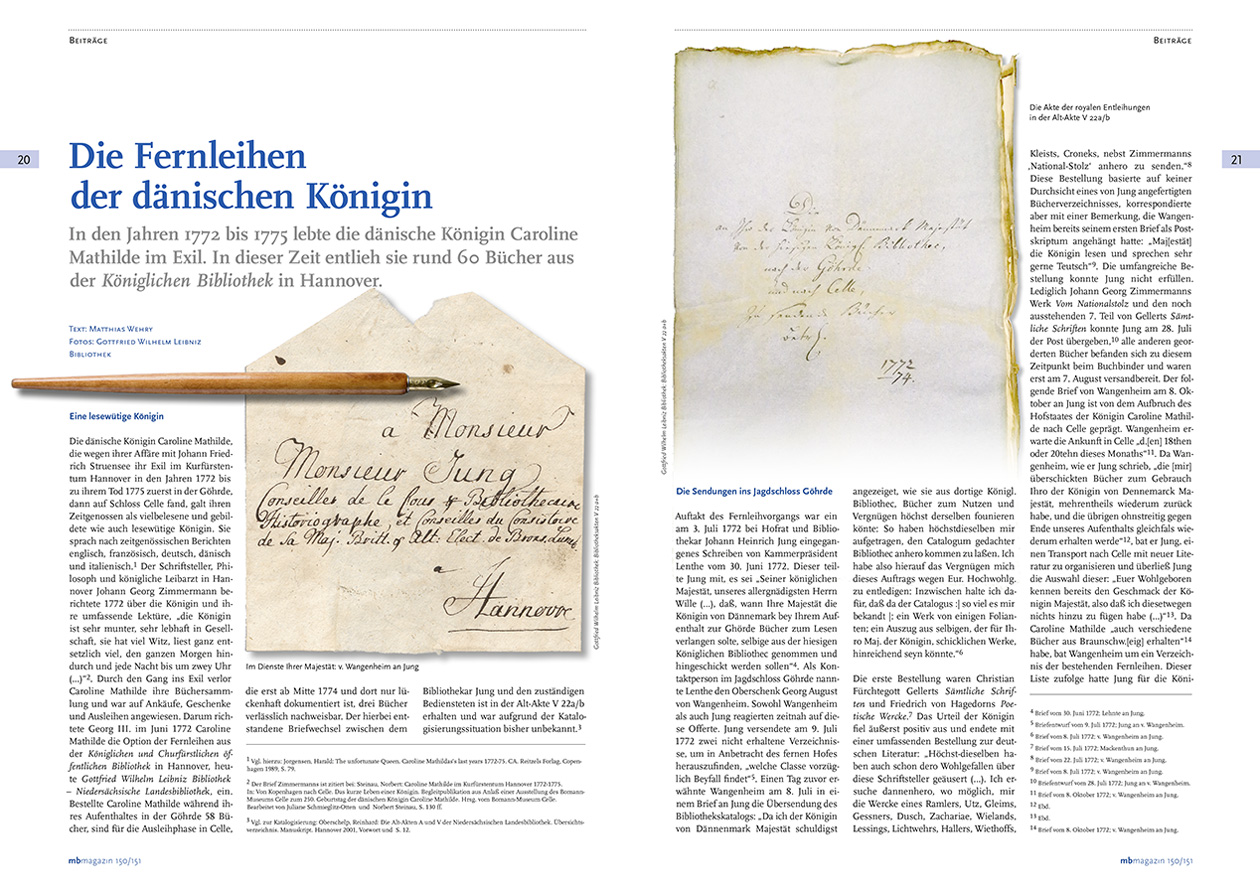 Beiträge
20
Die Fernleihen
der dänischen Königin
In den Jahren 1772 bis 1775 lebte die dänische Königin Caroline
Mathilde im Exil. In dieser Zeit entlieh sie rund 60 Bücher aus
der Königlichen Bibliothek in Hannover.
Text: Matthias Wehry
Fotos: Gottfried Wilhelm Leibniz
Bibliothek
Eine lesewütige Königin
Die dänische Königin Caroline Mathilde,
die wegen ihrer Affäre mit Johann Fried-
rich Struensee ihr Exil im Kurfürsten-
tum Hannover in den Jahren 1772 bis
zu ihrem Tod 1775 zuerst in der Göhrde,
dann auf Schloss Celle fand, galt ihren
Zeitgenossen als vielbelesene und gebil-
dete wie auch lesewütige Königin. Sie
sprach nach zeitgenössischen Berichten
englisch, französisch, deutsch, dänisch
und italienisch.1 Der Schriftsteller, Phi-
losoph und königliche Leibarzt in Han-
nover Johann Georg Zimmermann be-
richtete 1772 über die Königin und ih-
re umfassende Lektüre, „die Königin
ist sehr munter, sehr lebhaft in Gesell-
schaft, sie hat viel Witz, liest ganz ent-
setzlich viel, den ganzen Morgen hin-
durch und jede Nacht bis um zwey Uhr
(...)“2. Durch den Gang ins Exil verlor
Caroline Mathilde ihre Büchersamm-
lung und war auf Ankäufe, Geschenke
und Ausleihen angewiesen. Darum rich-
tete Georg III. im Juni 1772 Caroline
Mathilde die Option der Fernleihen aus
der Königlichen und Churfürstlichen öf-
fentlichen Bibliothek in Hannover, heu-
te Gottfried Wilhelm Leibniz Bibliothek
– Niedersächsische Landesbibliothek, ein.
Bestellte Caroline Mathilde während ih-
res Aufenthaltes in der Göhrde 58 Bü-
cher, sind für die Ausleihphase in Celle,
a Monsieur
Monsieur Jung
Conseiller de la Cour & Bibliothecaire
Historiographe, et Conseiller du Consistoire
de Sa Maj. Britt. & Alt. Elect. de Bronsv. Lun.
a
Hannovre
Gottfried Wilhelm Leibniz Bibliothek: Bibliotheksakten V 22 a+b
Im Dienste Ihrer Majestät: v. Wangenheim an Jung
die erst ab Mitte 1774 und dort nur lü-
ckenhaft dokumentiert ist, drei Bücher
verlässlich nachweisbar. Der hierbei ent-
standene Briefwechsel zwischen dem
Bibliothekar Jung und den zuständigen
Bediensteten ist in der Alt-Akte V 22a/b
erhalten und war aufgrund der Katalo-
gisierungssituation bisher unbekannt.3
1 Vgl. hierzu: Jorgensen, Harald: The unfortunate Queen. Caroline Mathildas's last years 1772-75. CA. Reitzels Forlag, Copen-
hagen 1989, S. 79.
2 Der Brief Zimmermanns ist zitiert bei: Steinau, Norbert: Caroline Mathilde im Kurfürstentum Hannover 1772-1775.
In: Von Kopenhagen nach Celle. Das kurze Leben einer Königin. Begleitpublikation aus Anlaß einer Ausstellung des Bomann-
Museums Celle zum 250. Geburtstag der dänischen Königin Caroline Mathilde. Hrsg. vom Bomann-Museum Celle.
Bearbeitet von Juliane Schmieglitz-Otten und Norbert Steinau, S. 110 ff.
3 Vgl. zur Katalogisierung: Oberschelp, Reinhard: Die Alt-Akten A und V der Niedersächsischen Landesbibliothek. Übersichts-
verzeichnis. Manuskript. Hannover 2001, Vorwort und S. 12.
mbmagazin 150/151
Beiträge
21
Die
an Ihro der Königin von Dännemark Majestät
von der hiesigen Königl. Bibliothec,
nach der Göhrde
und nach Celle,
zu sendende Bücher
betr.
1772
/74.
Gottfried Wilhelm Leibniz Bibliothek: Bibliotheksakten V 22 a+b
Die Akte der royalen Entleihungen
in der Alt-Akte V 22a/b
Die Sendungen ins Jagdschloss Göhrde
Auftakt des Fernleihvorgangs war ein
am 3. Juli 1772 bei Hofrat und Biblio-
thekar Johann Heinrich Jung eingegan-
genes Schreiben von Kammerpräsident
Lenthe vom 30. Juni 1772. Dieser teil-
te Jung mit, es sei „Seiner königlichen
Majestät, unseres allergnädigsten Herrn
Wille (...), daß, wann Ihre Majestät die
Königin von Dännemark bey Ihrem Auf-
enthalt zur Ghörde Bücher zum Lesen
verlangen solte, selbige aus der hiesigen
Königlichen Bibliothec genommen und
hingeschickt werden sollen“4. Als Kon-
taktperson im Jagdschloss Göhrde nann-
te Lenthe den Oberschenk Georg August
von Wangenheim. Sowohl Wangenheim
als auch Jung reagierten zeitnah auf die-
se Offerte. Jung versendete am 9. Juli
1772 zwei nicht erhaltene Verzeichnis-
se, um in Anbetracht des fernen Hofes
herauszufinden, „welche Classe vorzüg-
lich Beyfall findet“5. Einen Tag zuvor er-
wähnte Wangenheim am 8. Juli in ei-
nem Brief an Jung die Übersendung des
Bibliothekskatalogs: „Da ich der Königin
von Dännenmark Majestät schuldigst
angezeiget, wie sie aus dortige Königl.
Bibliothec, Bücher zum Nutzen und
Vergnügen höchst derselben founieren
könte: So haben höchstdieselben mir
aufgetragen, den Catalogum gedachter
Bibliothec anhero kommen zu laßen. Ich
habe also hierauf das Vergnügen mich
dieses Auftrags wegen Eur. Hochwohlg.
zu entledigen: Inzwischen halte ich da-
für, daß da der Catalogus :| so viel es mir
bekandt |: ein Werk von einigen Folian-
ten: ein Auszug aus selbigen, der für Ih-
ro Maj. der Königin, schicklichen Werke,
hinreichend seyn könnte.“6
Die erste Bestellung waren Christian
Fürchtegott Gellerts Sämtliche Schrif-
ten und Friedrich von Hagedorns Poe-
tische Wercke.7 Das Urteil der Königin
fiel äußerst positiv aus und endete mit
einer umfassenden Bestellung zur deut-
schen Literatur: „Höchst-dieselben ha-
ben auch schon dero Wohlgefallen über
diese Schriftsteller geäusert (...). Ich er-
suche dannenhero, wo möglich, mir
die Wercke eines Ramlers, Utz, Gleims,
Gessners, Dusch, Zachariae, Wielands,
Lessings, Lichtwehrs, Hallers, Wiethoffs,
Kleists, Croneks, nebst Zimmermanns
‚National-Stolz‘ anhero zu senden.“8
Diese Bestellung basierte auf keiner
Durchsicht eines von Jung angefertigten
Bücherverzeichnisses, korrespondierte
aber mit einer Bemerkung, die Wangen-
heim bereits seinem ersten Brief als Post-
skriptum angehängt hatte: „Maj[estät]
die Königin lesen und sprechen sehr
gerne Teutsch“9. Die umfangreiche Be-
stellung konnte Jung nicht erfüllen.
Lediglich Johann Georg Zimmermanns
Werk Vom Nationalstolz und den noch
ausstehenden 7. Teil von Gellerts Sämt-
liche Schriften konnte Jung am 28. Juli
der Post übergeben,10 alle anderen geor-
derten Bücher befanden sich zu diesem
Zeitpunkt beim Buchbinder und waren
erst am 7. August versandbereit. Der fol-
gende Brief von Wangenheim am 8. Ok-
tober an Jung ist von dem Aufbruch des
Hofstaates der Königin Caroline Mathil-
de nach Celle geprägt. Wangenheim er-
warte die Ankunft in Celle „d.[en] 18then
oder 20tehn dieses Monaths“11. Da Wan-
genheim, wie er Jung schrieb, „die [mir]
überschickten Bücher zum Gebrauch
Ihro der Königin von Dennemarck Ma-
jestät, mehrentheils wiederum zurück
habe, und die übrigen ohnstreitig gegen
Ende unseres Aufenthalts gleichfals wie-
derum erhalten werde“12, bat er Jung, ei-
nen Transport nach Celle mit neuer Lite-
ratur zu organisieren und überließ Jung
die Auswahl dieser: „Euer Wohlgeboren
kennen bereits den Geschmack der Kö-
nigin Majestät, also daß ich diesetwegen
nichts hinzu zu fügen habe (...)“13. Da
Caroline Mathilde „auch verschiedene
Bücher aus Braunschw.[eig] erhalten“14
habe, bat Wangenheim um ein Verzeich-
nis der bestehenden Fernleihen. Dieser
Liste zufolge hatte Jung für die Köni-
4 Brief vom 30. Juni 1772; Lehnte an Jung.
5 Briefentwurf vom 9. Juli 1772; Jung an v. Wangenheim.
6 Brief vom 8. Juli 1772; v. Wangenheim an Jung.
7 Brief vom 15. Juli 1772; Mackenthun an Jung.
8 Brief vom 22. Juli 1772; v. Wangenheim an Jung.
9 Brief vom 8. Juli 1772; v. Wangenheim an Jung.
10 Briefentwurf vom 28. Juli 1772; Jung an v. Wangenheim.
11 Brief vom 8. Oktober 1772; v. Wangenheim an Jung.
12 Ebd.
13 Ebd.
14 Brief vom 8. Oktober 1772; v. Wangenheim an Jung.
mbmagazin 150/151